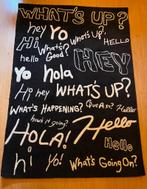 WHAT'S UP?
hey Yo WHAT'S UP?
Hi What's Good? HELLO
hello HEY
Yo hola
Hi hey WHAT'S UP?
WHAT'S HAPPENING? Hello
how's it going?
HOLA! Hello
Hello
hi Yo! What's Going On?